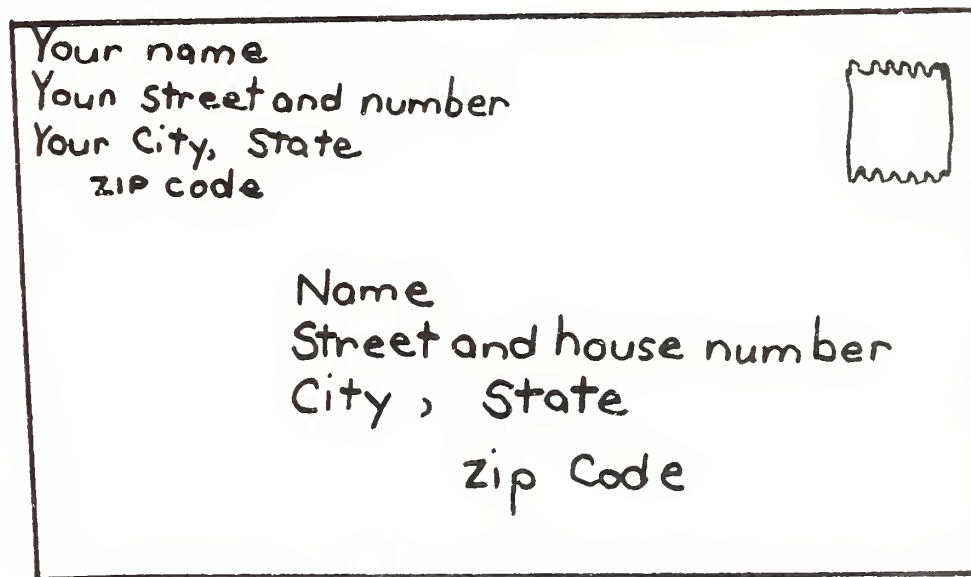 Your name
Youn street and number
Your City, State
ZIP code
Name
Street and house number
City, State
Zip Code